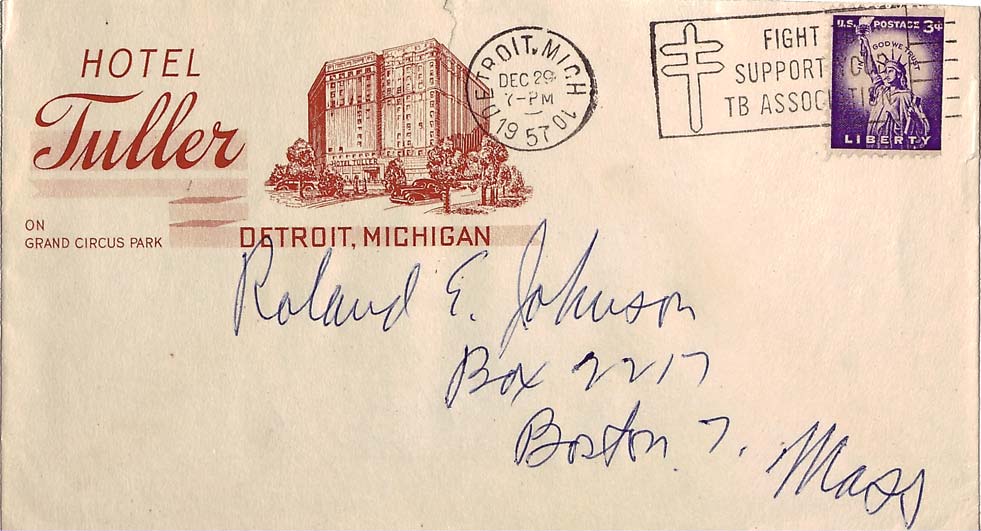 HOTEL
Tuller
ON
GRAND CIRCUS PARK
DETROIT, MICHIGAN
DETROIT, MICH
DEC 29
7-PM
1957
FIGHT
SUPPORT
TB ASSOC
U.S. POSTAGE 3¢
IN GOD WE TRUST
LIBERTY
Roland E. Johnson
Box 2217
Boston 7, Mass